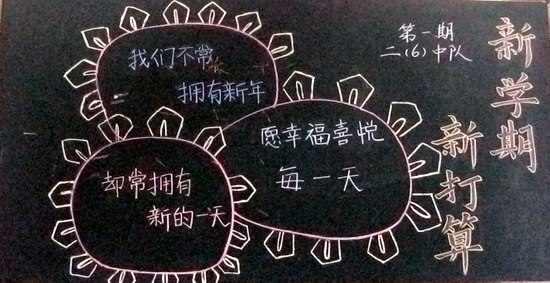 新学期
新打算
第一期
二(6)中队
我们不常
拥有新年
却常拥有
新的一天
愿幸福喜悦
每一天